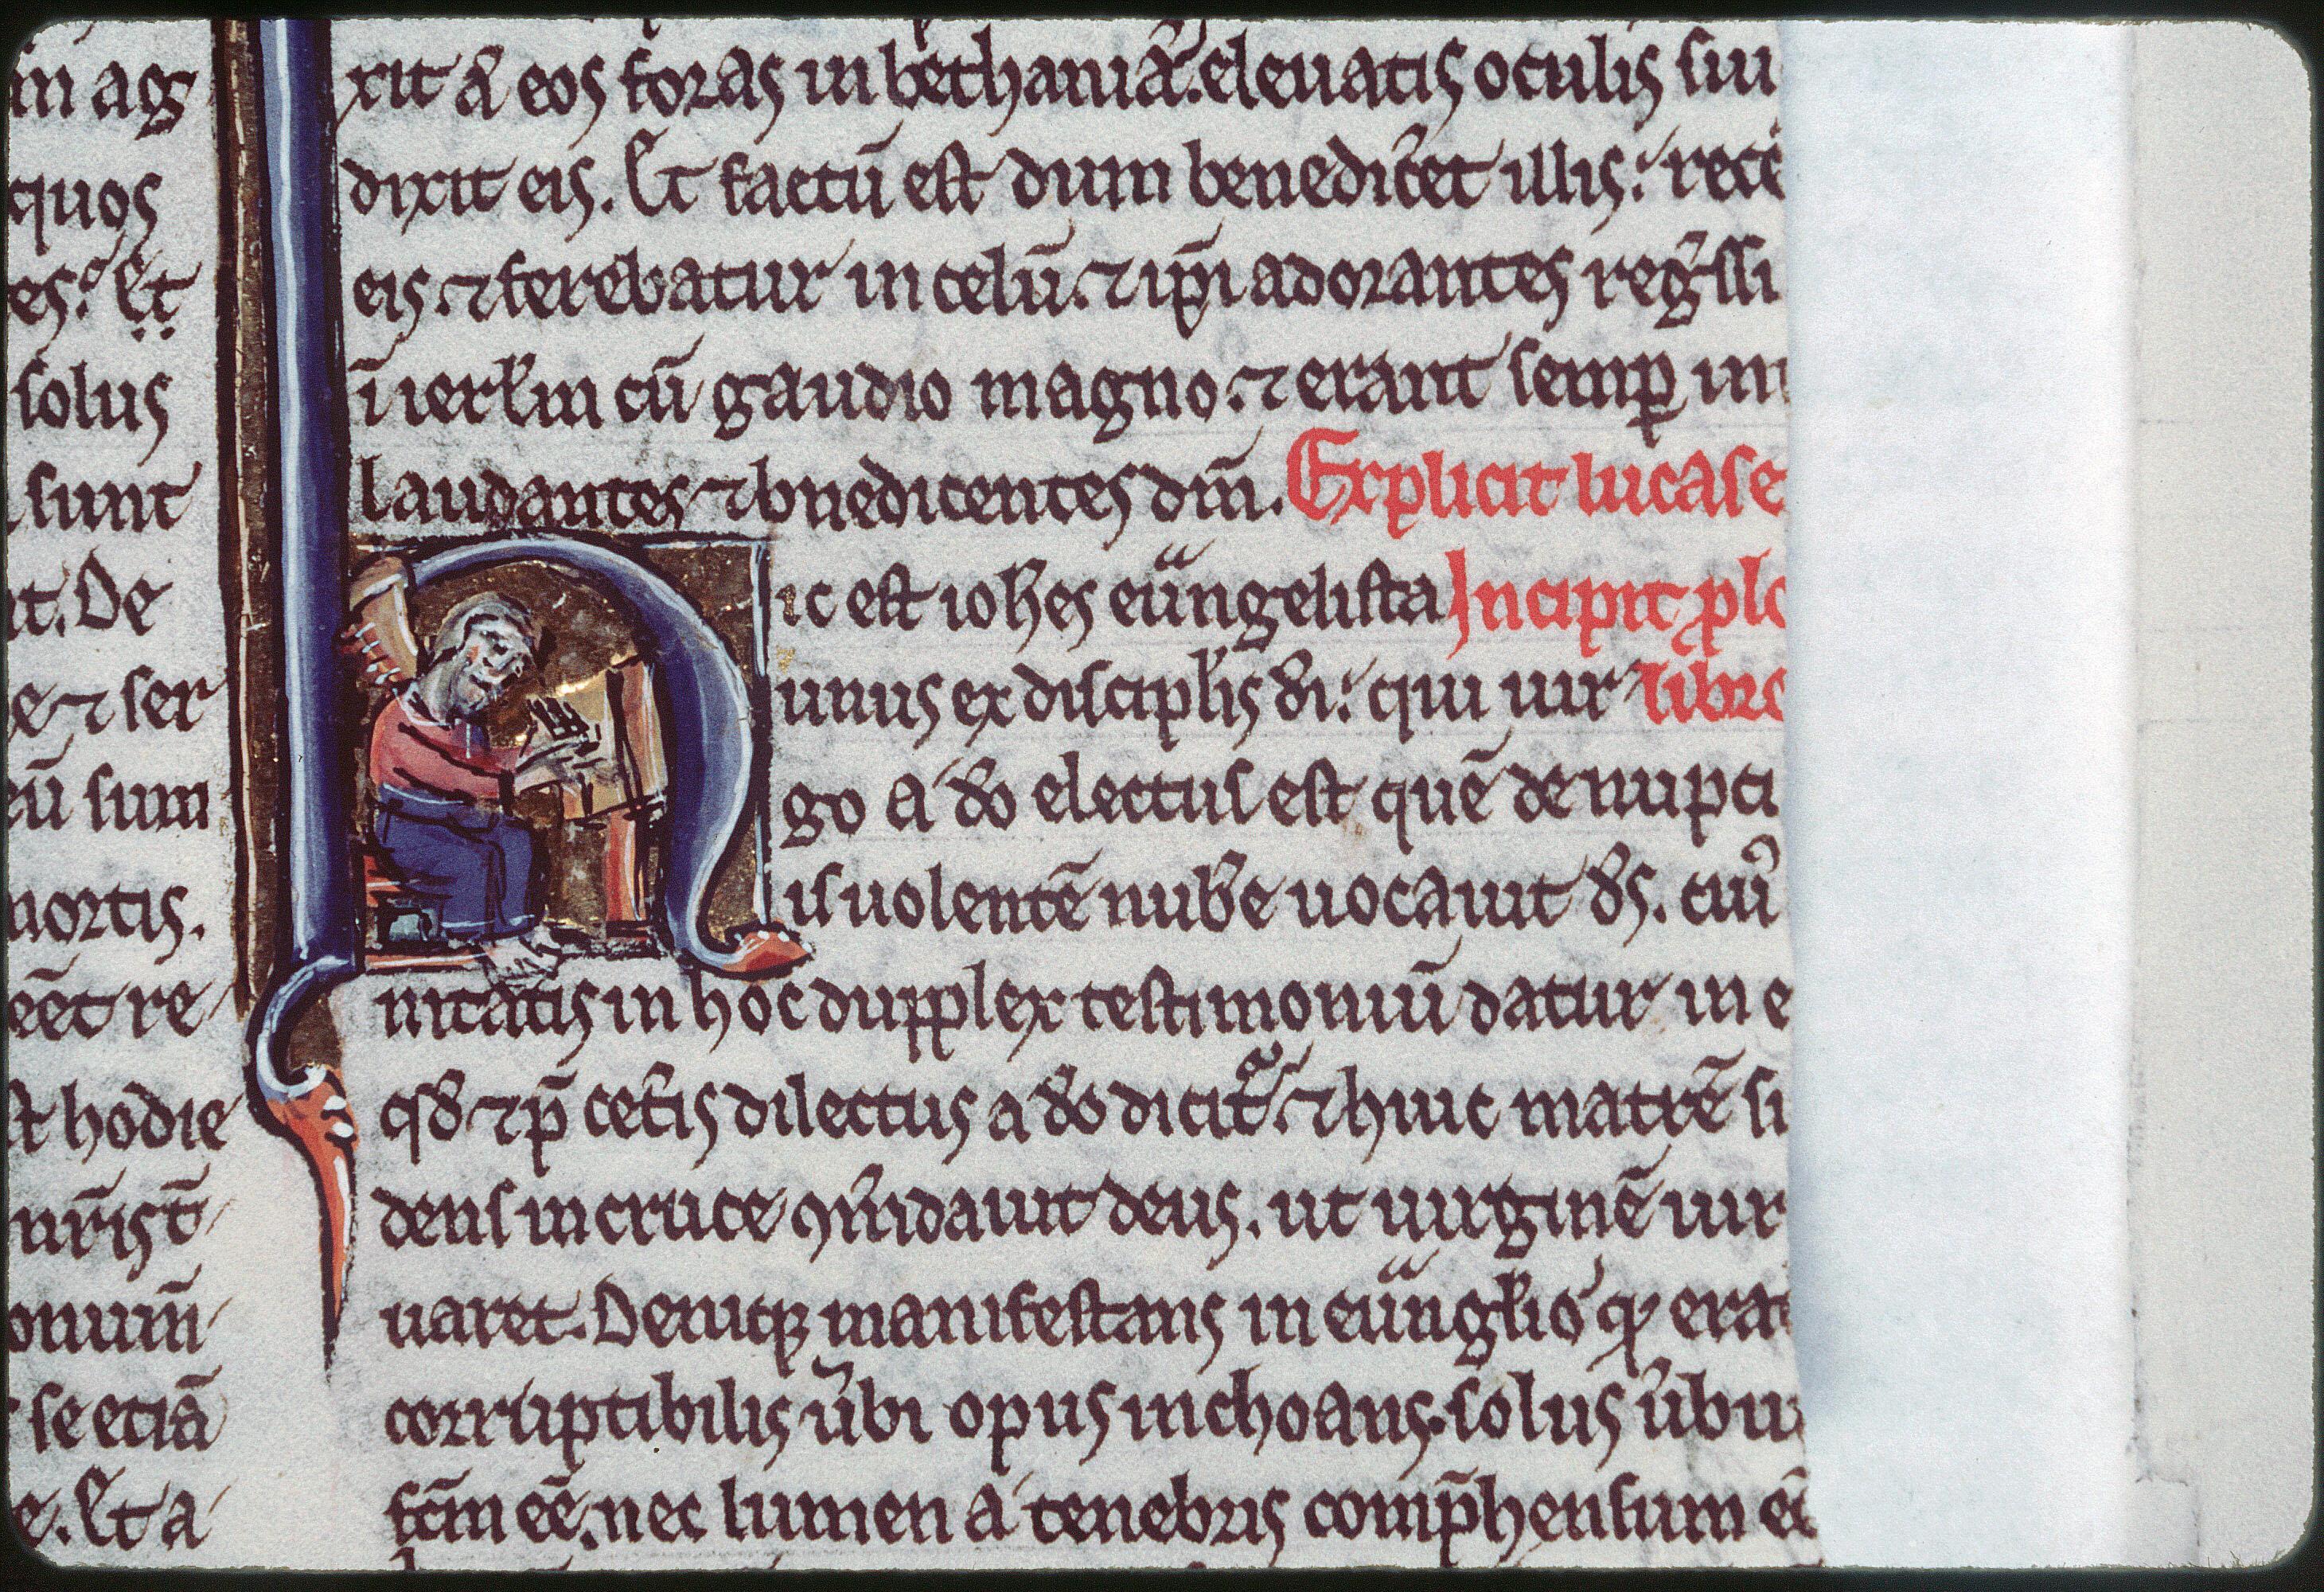 in ag
quos
es. Et
solus
sunt
t. De
e ⁊ ser
eū sum
mortis.
eēt re
st hodie
nr̄ist̄
onum̄
se etiā
e. Et a
xit aͭ eos foras in bethaniā. eleuatis oculis sui
dixit eis. Et factū est dum benedicēt illis: rece
eis. ⁊ ferebatur in celū. ⁊ ip̄i adorantes reg̃ssi
ī ierłm cū gaudio magno. ⁊ erant semꝑ in
laudantes ⁊ bn̄edicentes dm̄. Explicit lucas e
Hic est ioħes euangelista Incipit ꝓlo
unus ex discipłis di: qui uir libro
go a do electus est quē de nupti
is uolentē nub̃e uocauit ds. cui
nitatis in hoc duplex testimoniū datur in e
qđ ⁊ p̄ cet̃is dilectus a do dicit̃. ⁊ huic matrē su
dens in cruce ꝯm̃dauit deus. ut uirginē uir
uaret. Deniqꝫ manifestans in euangłio qͩ erat
corruptibilis ũbi opus inchoans. solus ũbu
fc̄m eē. nec lumen a tenebris comp̄hensum eē